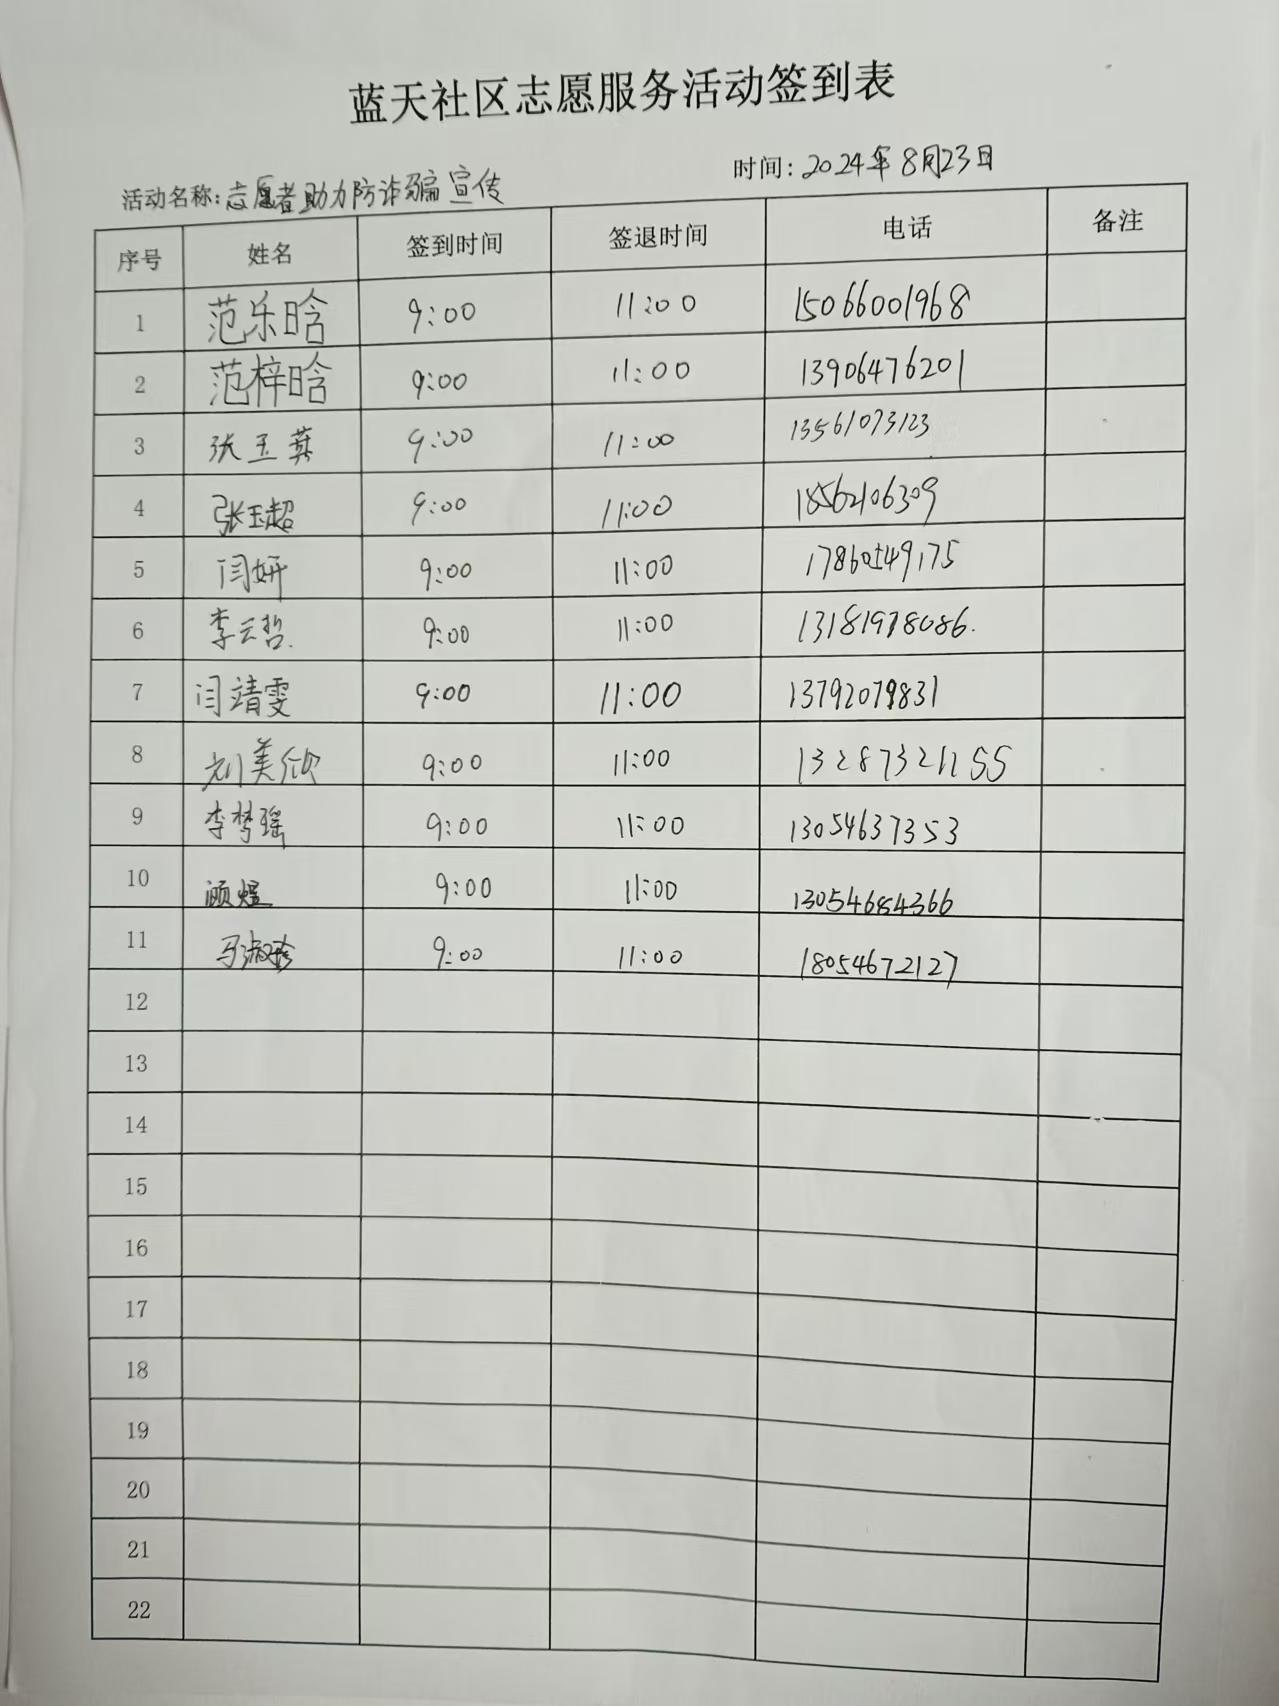 蓝天社区志愿服务活动签到表
活动名称:志愿者助力防诈骗宣传 时间:2024年8月23日
序号 姓名 签到时间 签退时间 电话 备注
1 范乐晗 9:00 11:00 15066001968
2 范梓晗 9:00 11:00 13906476201
3 张玉萁 9:00 11:00 13561073123
4 张玉超 9:00 11:00 18562106309
5 闫妍 9:00 11:00
6 李云哲. 9:00 11:00 13181978086.
7 闫靖雯 9:00 11:00 13792079831
8 刘美欣 9:00 11:00 13287321155
9 李梦瑶 9:00 11:00 13054637353
10 顾煜 9:00 11:00 13054684366
11 马淑珍 9:00 11:00 18054672127
12
13
14
15
16
17
18
19
20
21
22